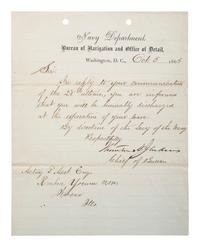 Navy Department,
Bureau of Navigation and Office of Detail,
Washington, D. C., Oct 5 1865
Sir
In reply to your communication
of the 28th ultimo, you are informed
that you will be honorably discharged
at the expiration of your leave.
By direction of the Secy of the Navy
Respectfully
Chief of Bureau
Acting